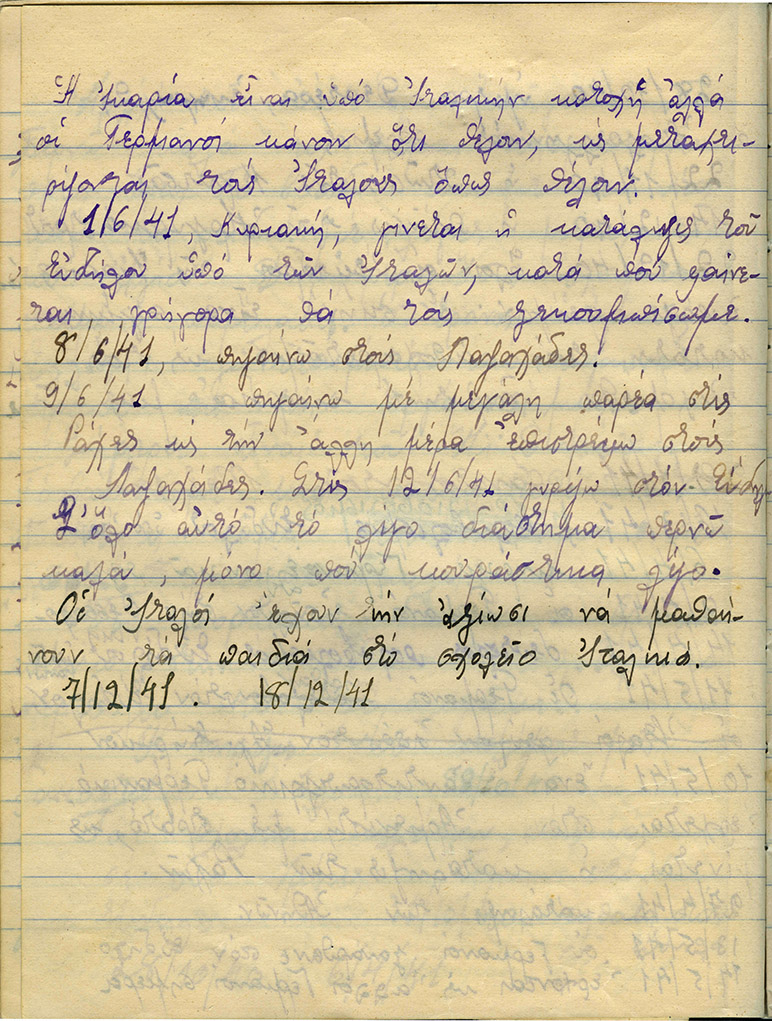 Ἡ Ἰκαρία εἶναι ὑπό Ἰταλικήν κατοχή ἀλλά
οἱ Γερμανοί κάνουν ὅτι θέλουν, κι μεταχει-
ρίζονται τούς Ἰταλούς ὅπως θέλουν.
1/6/41, Κυριακή, γινεται ἡ κατάληψις τοῦ
Εὐδήλου ὑπό τῶν Ἰταλῶν, κατά πού φαίνε-
ται γρήγορα θά τούς
8/6/41, πηγαίνω στούς Παπαχάδες.
9/6/41 πηγαίνω μέ μεγάλη παρέα στίς
Ράχες κι τήν ἄλλη μέρα ἐπιστρέφω στούς
. Στίς 12/6/41 γυρίζω στόν Εὔδηλ
Σ' ὅλο αὐτό τό λίγο διάστημα περνῶ
καλά, μονο πού κουράστικα λίγο.
Οἱ Ἰταλοί ἔχουν τήν ἀξίωσι νά μαθαί-
νουν τά παιδιά στό σχολεῖο Ἰταλικά.
7/12/41. 18/12/41